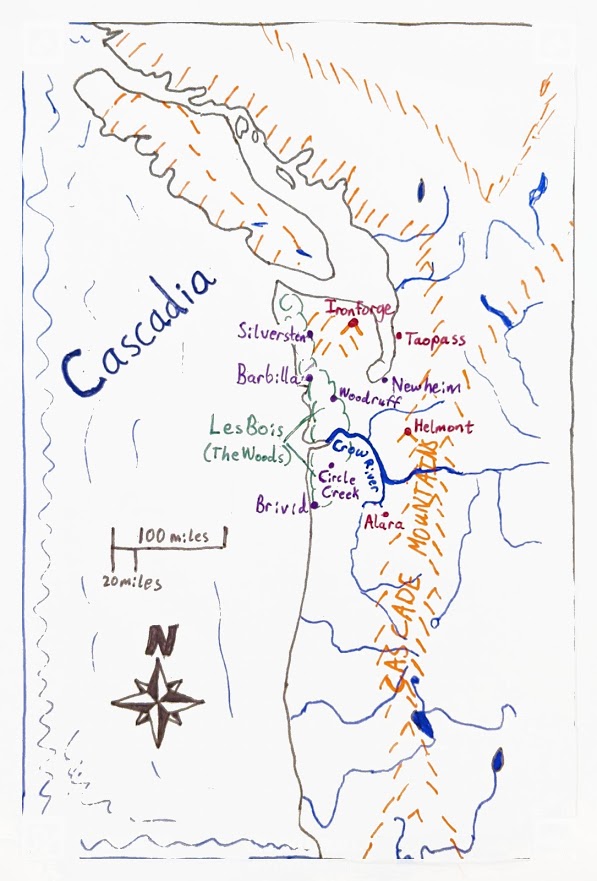 Cascadia
Ironforge
Silversten
Taopass
Barbilla
Newheim
Woodruff
Les Bois
(The Woods)
Helmont
Crow River
Circle
Creek
Brivid
Alara
CASCADE MOUNTAINS
100 miles
20 miles
N